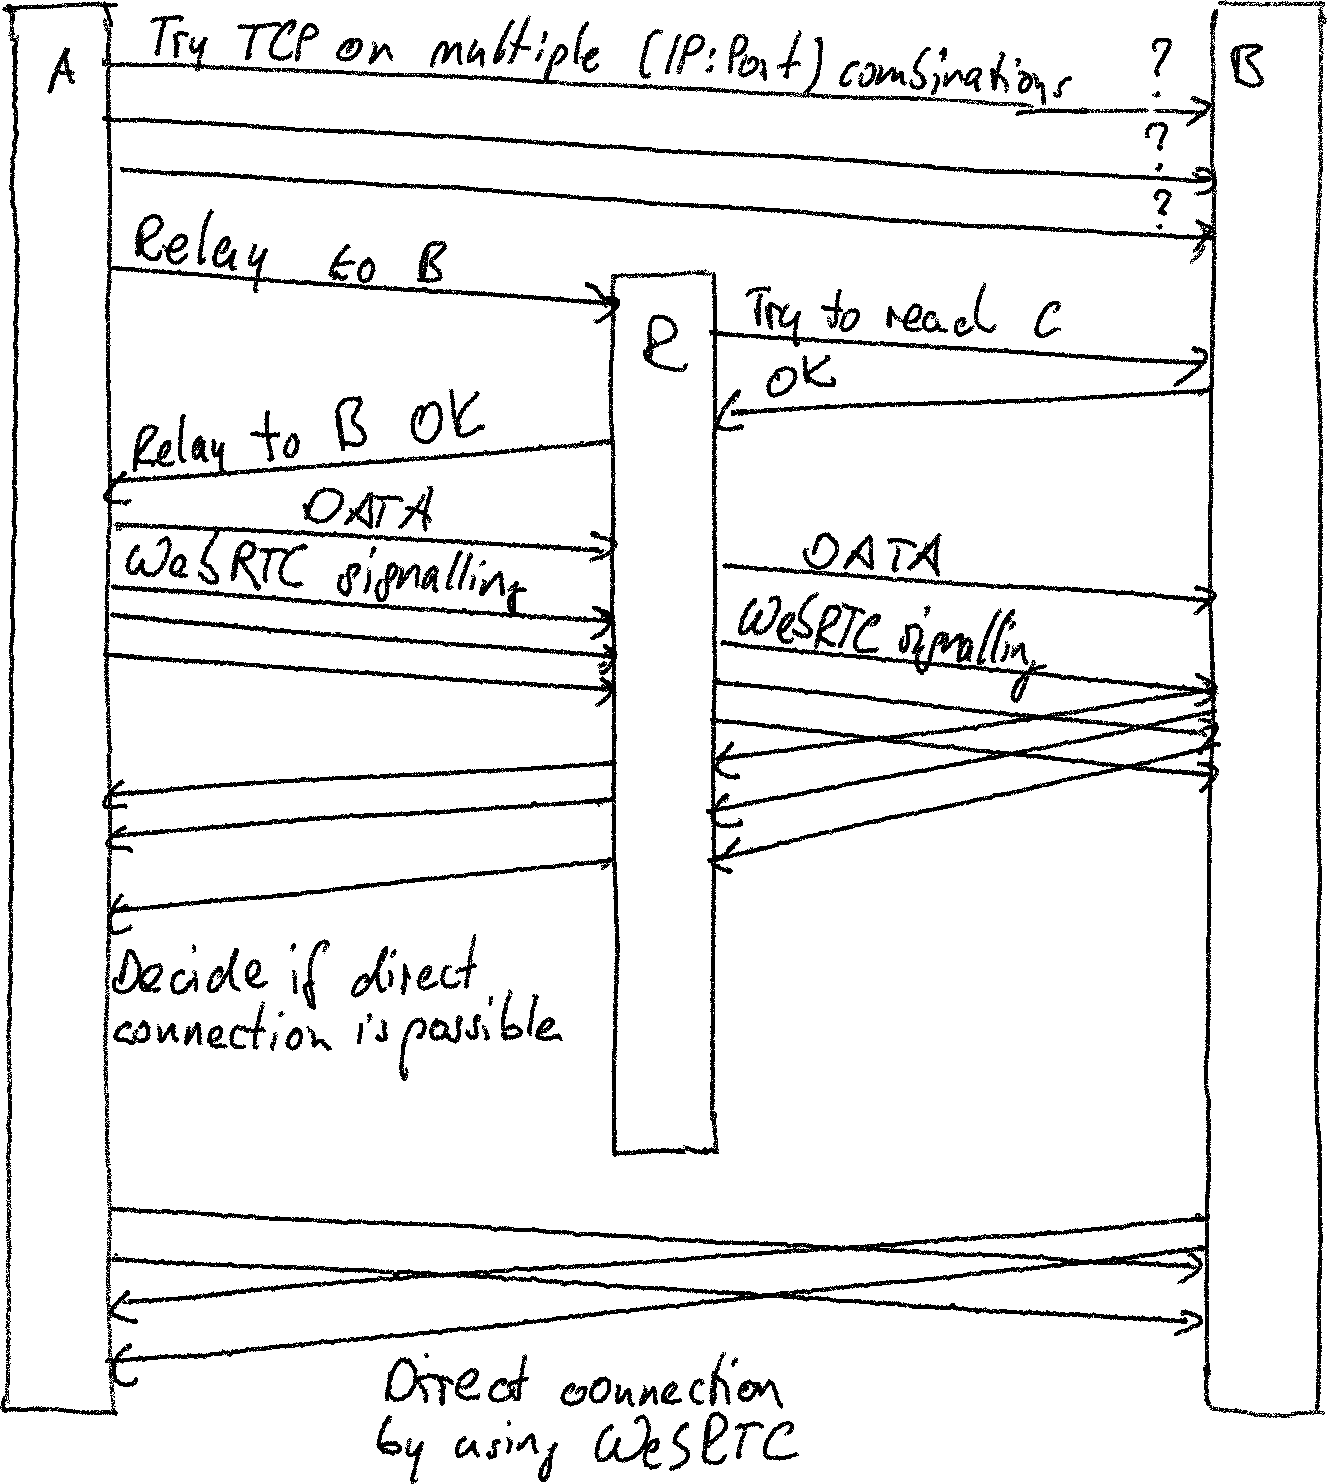 A
Try TCP on multiple (IP:Port) combinations
?
B
?
?
Relay to B
R
Try to reach C
OK
Relay to B OK
DATA
WebRTC signalling
DATA
WebRTC signalling
Decide if direct
connection is possible
Direct connection
by using WebRTC